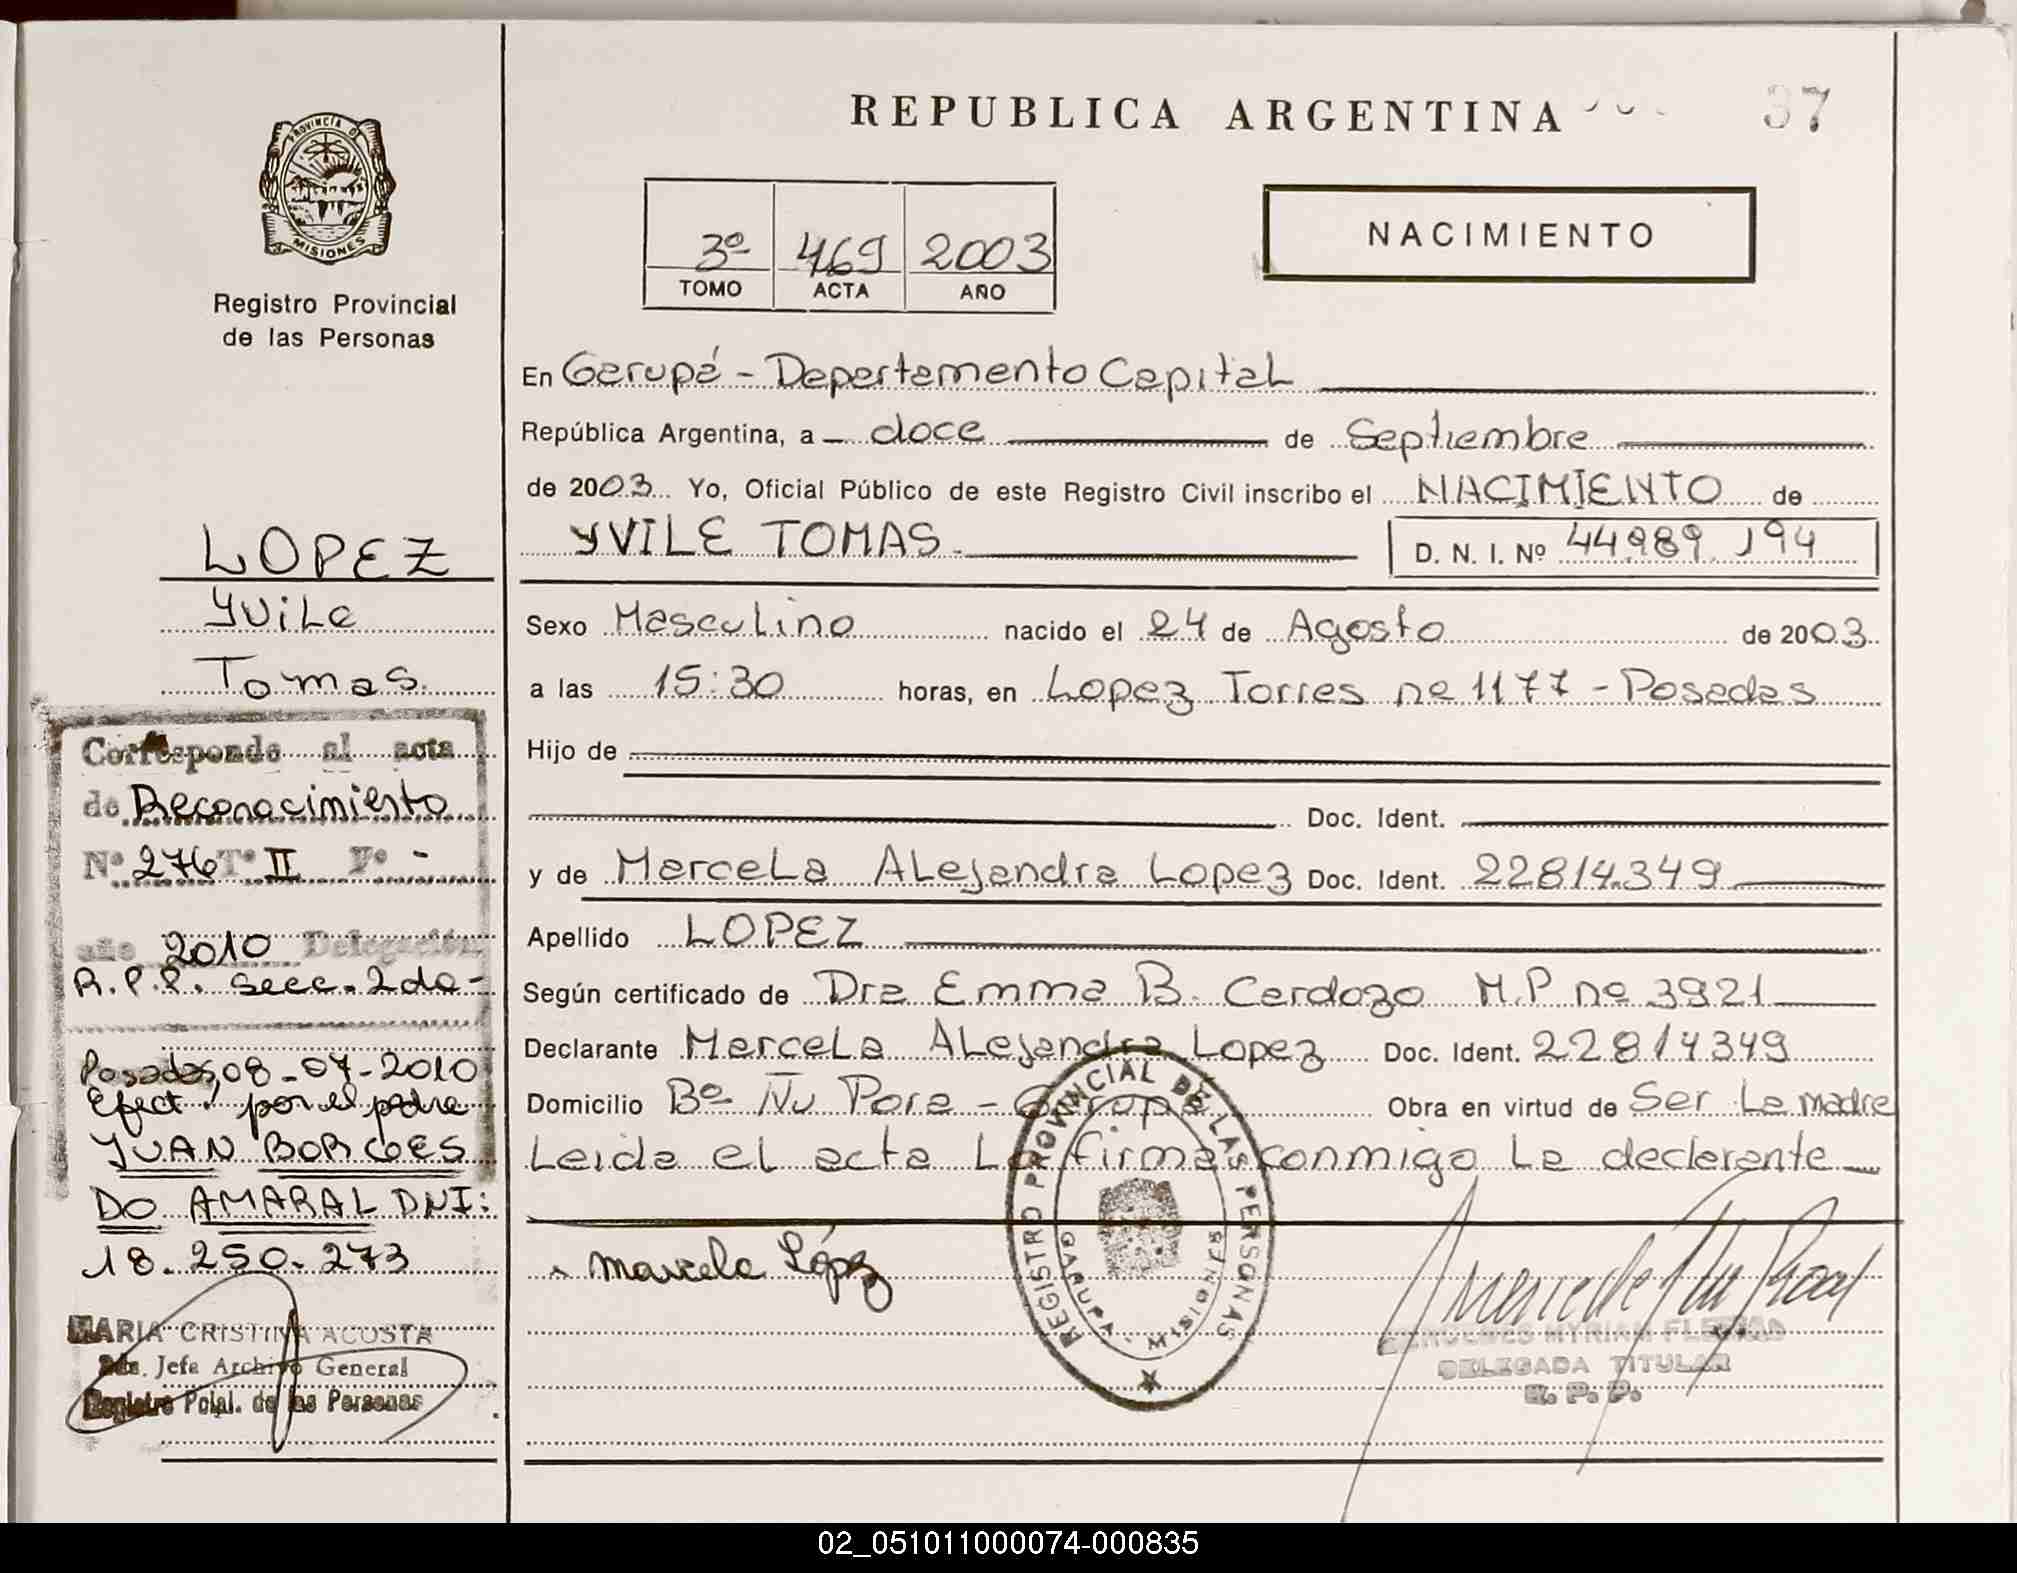 REPUBLICA ARGENTINA
37
PROVINCIA DE
MISIONES
Registro Provincial
de las Personas
3º 469 2003
TOMO ACTA AÑO
NACIMIENTO
En Garupá - Departamento Capital
República Argentina, a doce de Septiembre
de 2003 Yo, Oficial Público de este Registro Civil inscribo el NACIMIENTO de
YVILE TOMAS
D. N. I. Nº 44.989.194
Sexo Masculino nacido el 24 de Agosto de 2003
a las 15:30 horas, en Lopez Torres nº 1177 - Posadas
Hijo de
Doc. Ident.
y de Marcela Alejandra Lopez Doc. Ident. 22814.349
Apellido LOPEZ
Según certificado de Dra Emma B. Cardozo M.P nº 3921
Declarante Marcela Alejandra Lopez Doc. Ident. 22814349
Domicilio Bº Ñu Pora - Garupá Obra en virtud de Ser La madre
Leida el acta La firma conmigo La declarante
Marcela López
REGISTRO PROVINCIAL DE LAS PERSONAS
GARUPA - MISIONES
MYRIAM
DELEGADA TITULAR
R. P. P.
LOPEZ
Yvile
Tomas
Corresponde al acta
de Reconocimiento
Nº 276 Tº II Fº -
año 2010 Delegación
R.P.P. Secc. 2da -
Posadas, 08-07-2010
Efect. por el padre
JUAN BORGES
DO AMARAL DNI:
18.250.273
MARIA CRISTINA ACOSTA
2da. Jefa Archivo General
Registro Pcial. de las Personas
02_051011000074-000835